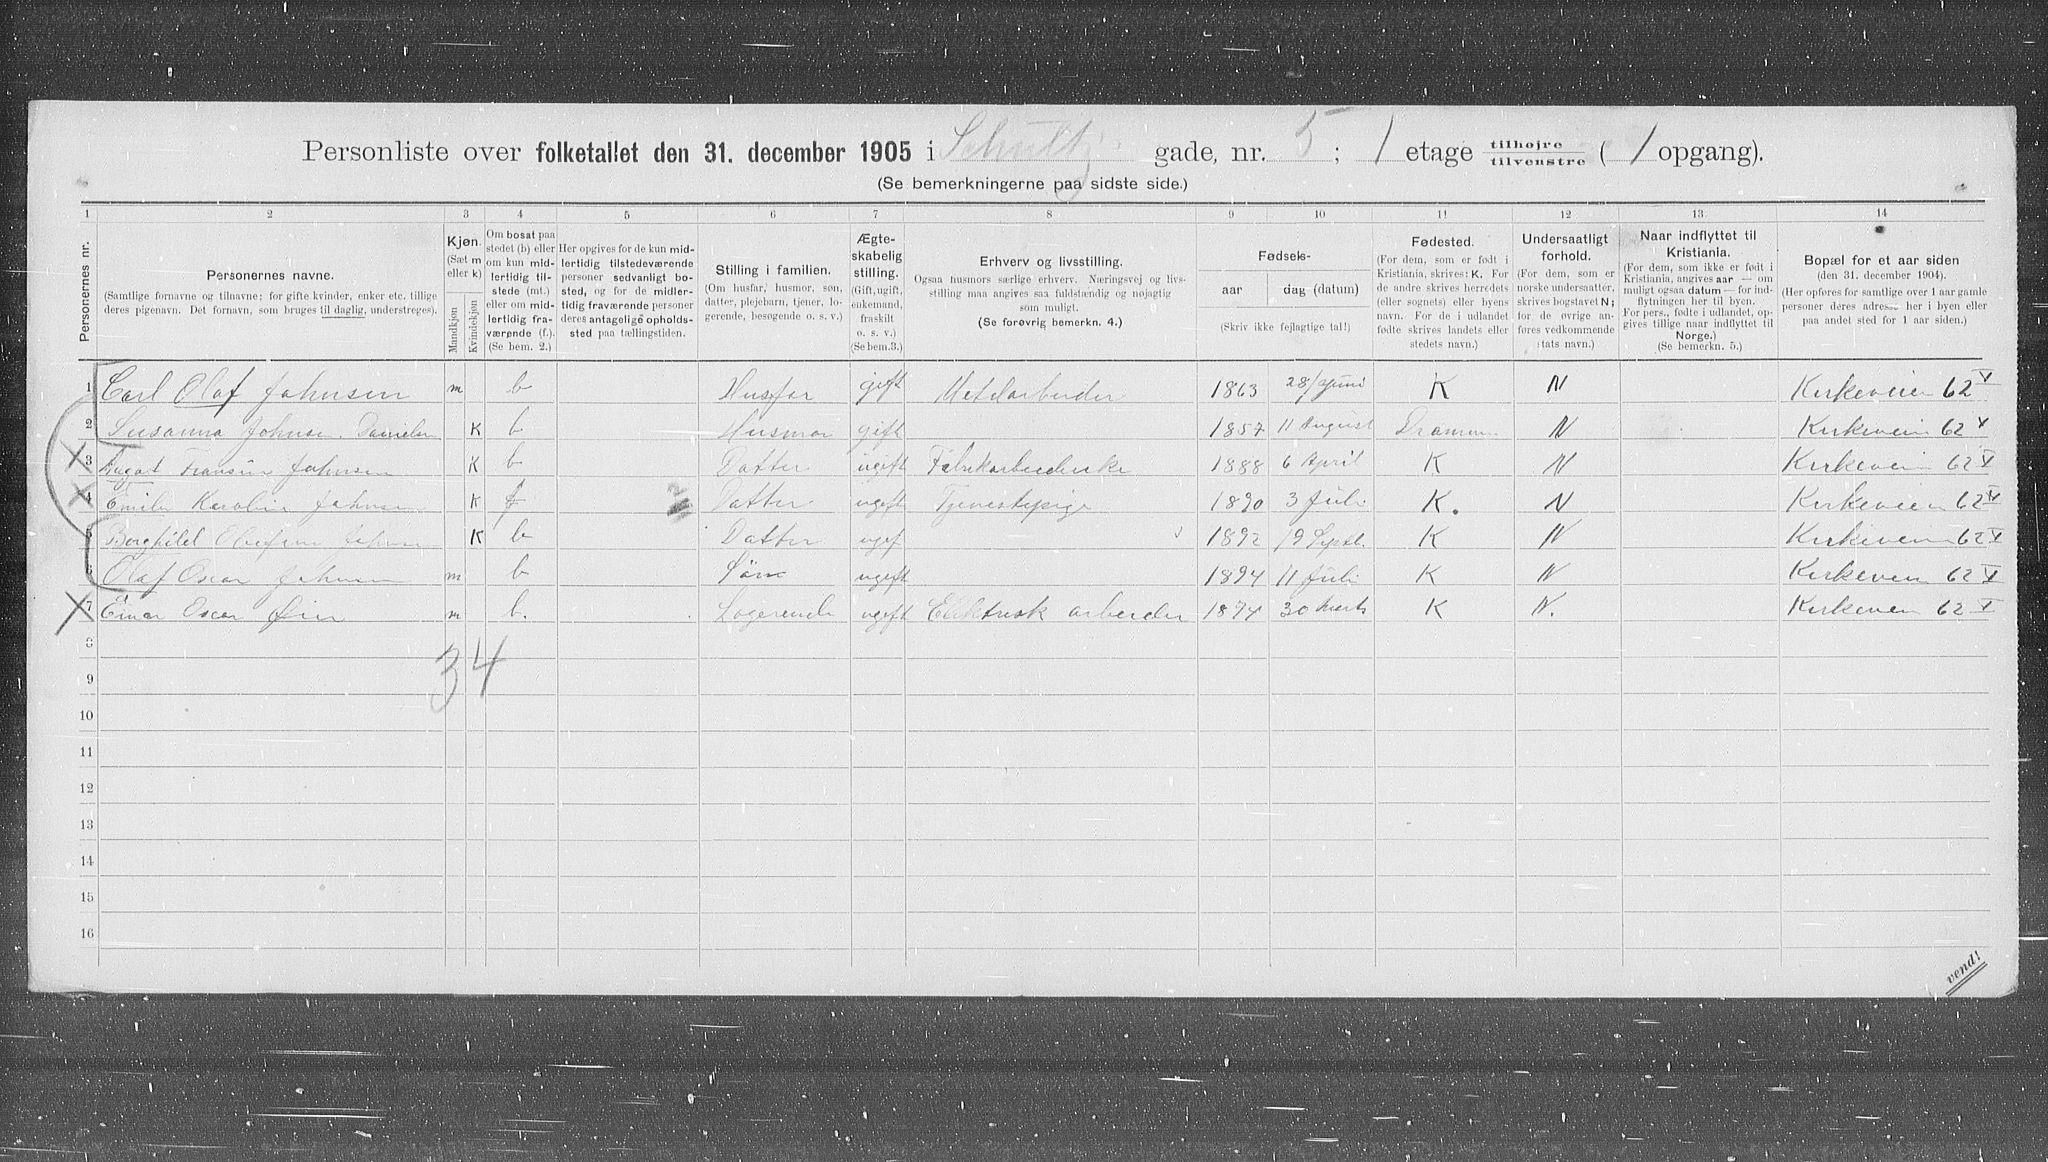 Personliste over folketallet den 31. december 1905 i Schultz gade, nr. 5 ; 1 etage tilhøjre tilvenstre ( 1 opgang).
(Se bemerkningerne paa sidste side.)
1 2 3 4 5 6 7 8 9 10 11 12 13 14
Personernes nr.
Personernes navne.
(Samtlige fornavne og tilnavne; for gifte kvinder, enker etc. tillige deres pigenavn. Det fornavn, som bruges til daglig, understreges).
Kjøn.
(Sæt m eller k)
Mandkjøn
Kvindekjøn
Om bosat paa stedet (b) eller om kun midlertidig tilstede (mt.) eller om midlertidig fraværende (f.). (Se bem. 2.)
Her opgives for de kun midlertidig tilstedeværende personer sedvanligt bosted, og for de midlertidig fraværende personer deres antagelige opholdssted paa tællingstiden.
Stilling i familien.
(Om husfar, husmor, søn, datter, plejebarn, tjener, logerende, besøgende o. s. v.)
Ægteskabelig stilling.
(Gift, ugift, enkemand, fraskilt o. s. v.) (Se bem. 3.)
Erhverv og livsstilling.
Ogsaa husmors særlige erhverv. Næringsvej og livsstilling maa angives saa fuldstændig og nøjagtig som muligt.
(Se forøvrig bemerkn. 4.)
Fødsels-
aar
dag (datum)
(Skriv ikke fejlagtige tal!)
Fødested.
(For dem, som er født i Kristiania, skrives: K. For de andre skrives herredets (eller sognets) eller byens navn. For de i udlandet fødte skrives landets eller stedets navn.)
Undersaatligt forhold.
(For dem, som er norske undersaatter, skrives bogstavet N; for de øvrige anføres vedkommende stats navn.)
Naar indflyttet til Kristiania.
(For dem, som ikke er født i Kristiania, angives aar — om muligt ogsaa datum — for indflytningen her til byen. For pers., fødte i udlandet, opgives tillige naar indflyttet til Norge.)
(Se bemerkn. 5.)
Bopæl for et aar siden
(den 31. december 1904).
(Her opføres for samtlige over 1 aar gamle personer deres adresse her i byen eller paa andet sted for 1 aar siden.)
1 Carl Olaf Johnsen m b Husfar gift Metalarbeider 1863 28/Juni K N Kirkeveien 62 V
2 Susanna Johnsen K b Husmor gift 1857 11 August Drammen N Kirkeveien 62 V
3 Fransine Johnsen K b Datter ugift Fabrikarbeiderske 1888 6 April K N Kirkeveien 62 V
4 Emilie Karoline Johnsen K f Datter ugift Tjenestepige 1890 3 Juli K. N Kirkeveien 62 V
5 Borghild Johnsen K b Datter ugift 1892 19 Septb. K N Kirkeveien 62 V
6 Olaf Oscar Johnsen m b Søn ugift 1894 11 Juli K N Kirkeveien 62 V
7 Einar Oscar m b. Logerende ugift Elektrisk arbeider 1874 30 Marts K N. Kirkeveien 62 V
8
3 4
9
10
11
12
13
14
15
16
vend!